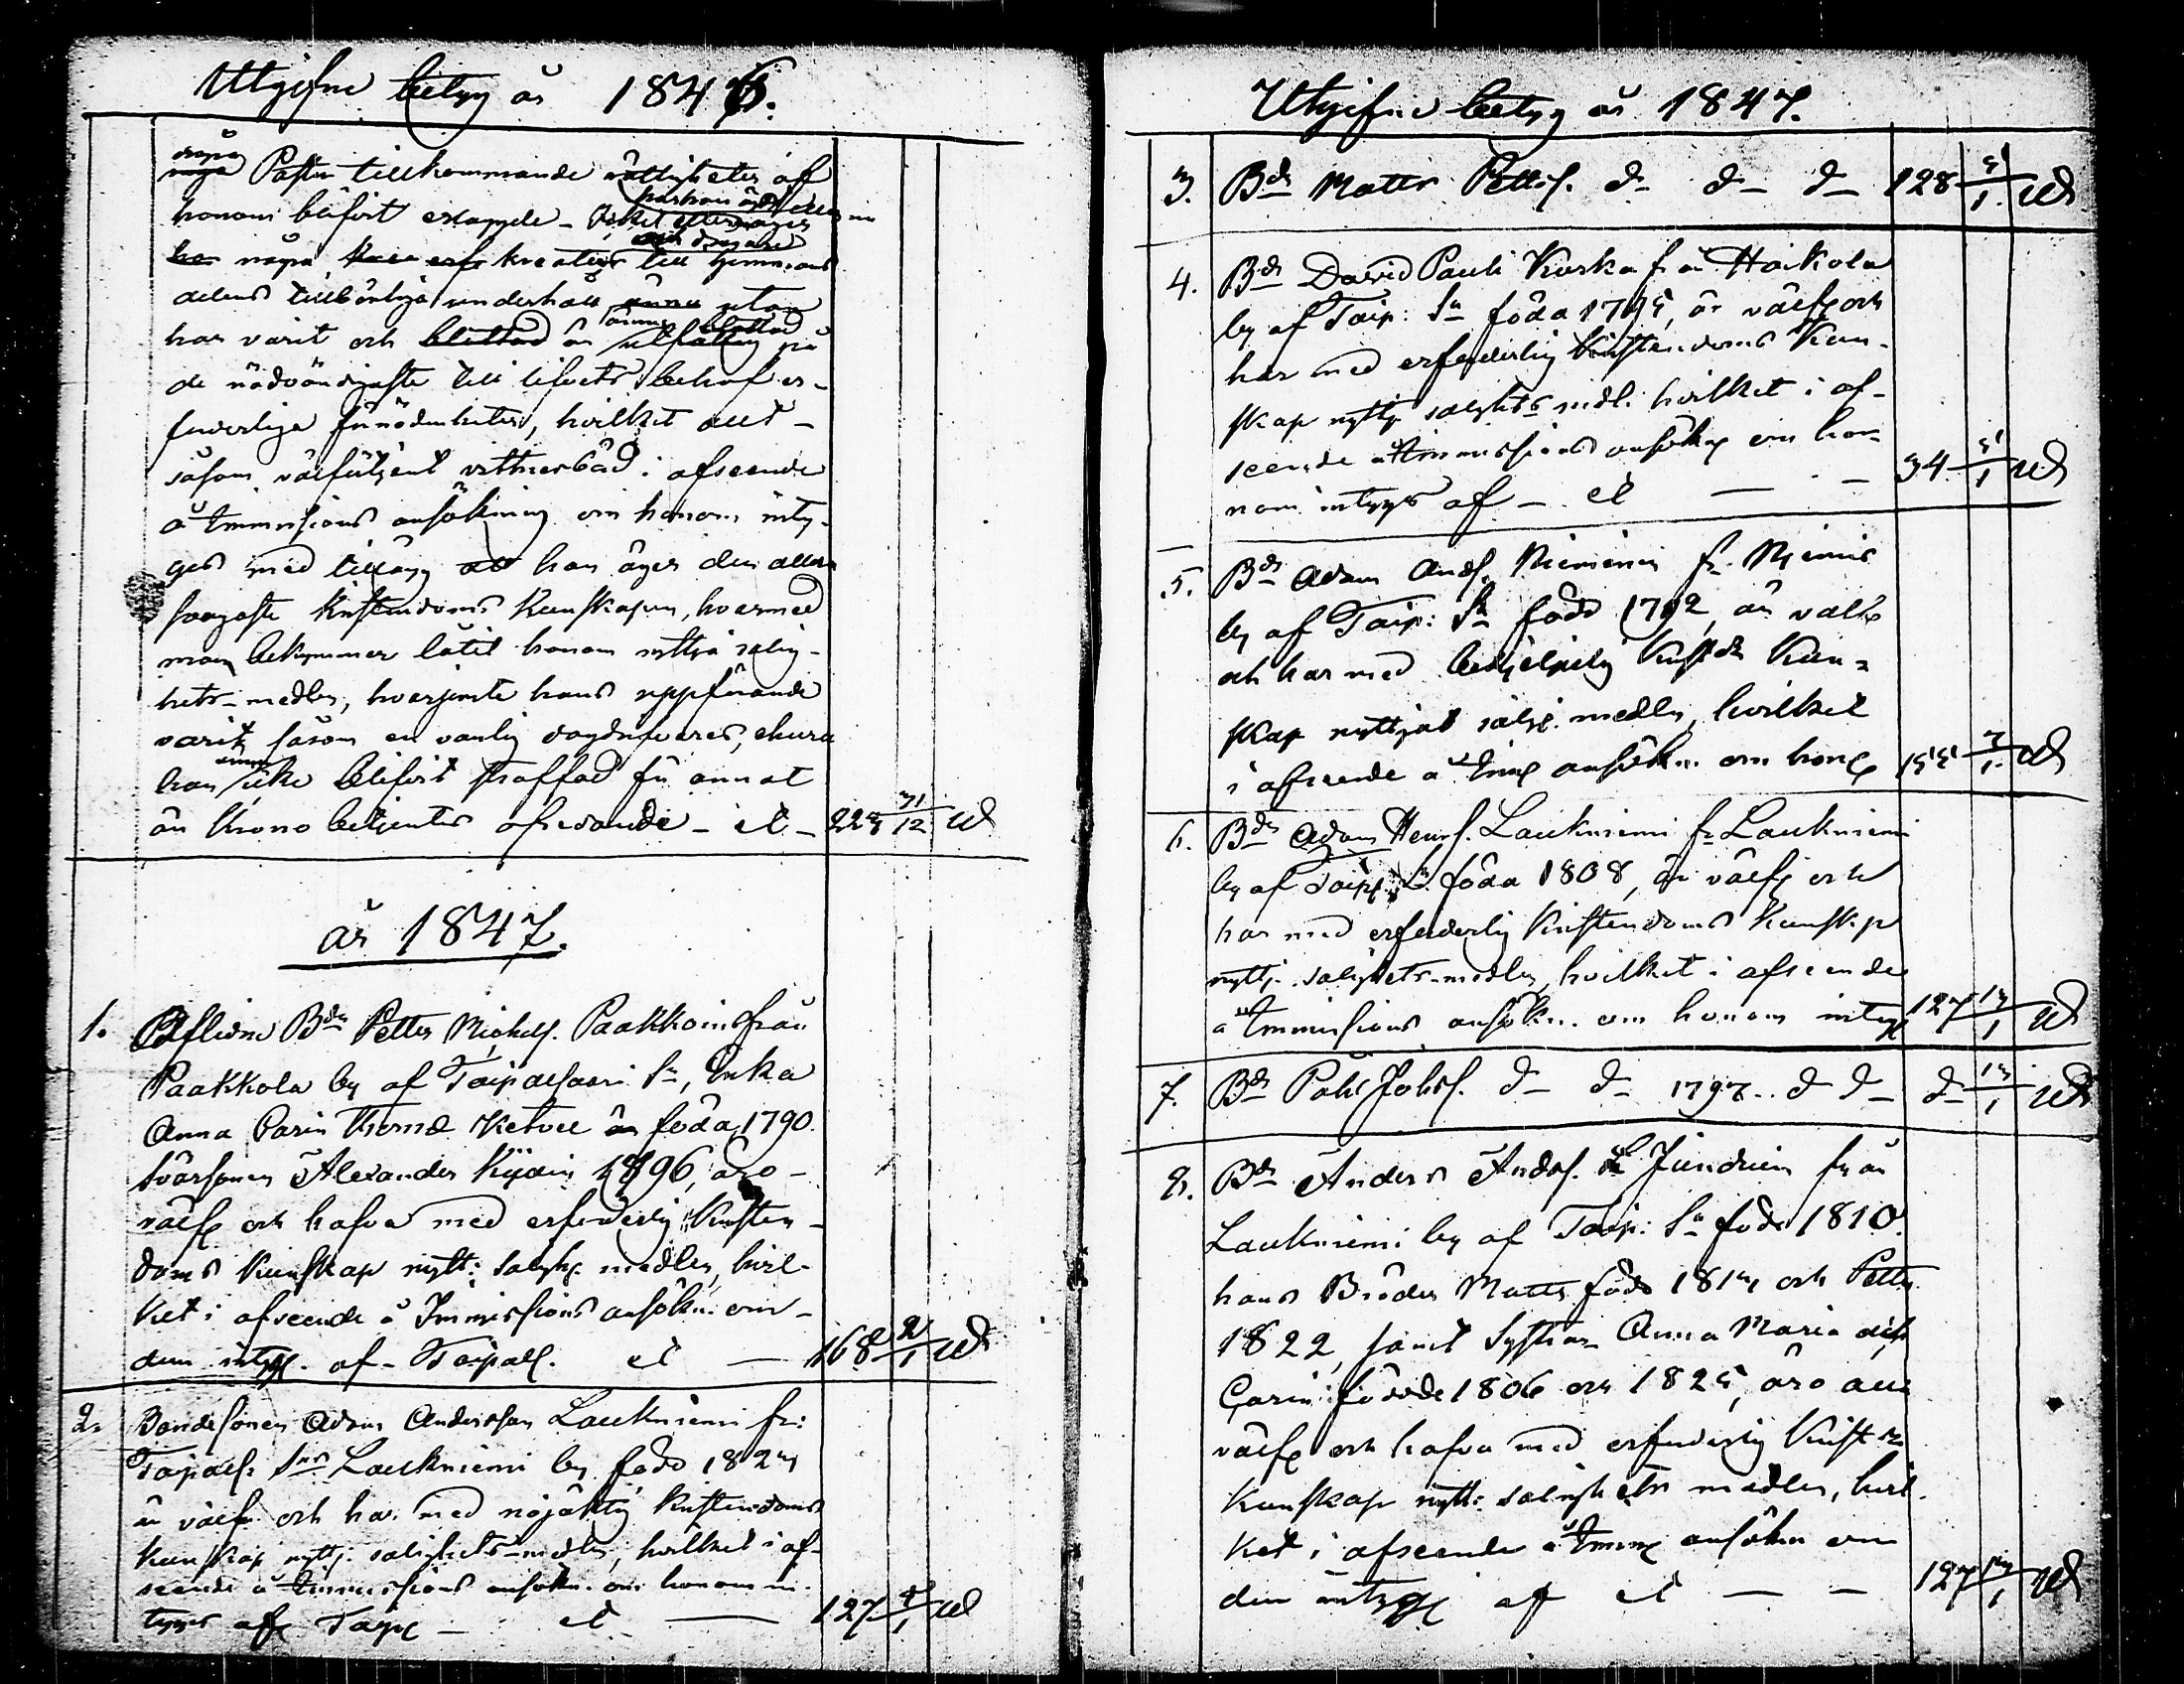 Utgifne betyg år 1846.
Pastor tillkommande rättigheter af
honom blifvit
några kreatur till hemmans
delens tillbörliga underhåll utan
har varit och blottad är
de nödvändigaste till lifvets behof er-
forderliga förnödenheter, hvilket allt
såsom välförtjent vittnesbörd i afseende
å Immissions ansökning om honom inty-
gas med tillägg att han äger den allra
svagaste Kristendoms Kunskapen, hvarmed
man bekymmer låtit honom nyttja salig-
hets-medlen, hvarjemte hans uppförande
varit såsom en vanlig dagdrifvares, ehuru
han icke blifvit straffad för annat
än Krono betjentes ofredande - et - 223 31/12 Ud
år 1847.
1. Aflidne Bdn Petter Michelss. Paakkoins från
Paakkola by af Taipalsaari Sn, Enka
Anna Carin Thomsd. född 1790.
Svärsonen Alexander 1896, äro
välfr och hafva med erforderlig Kristen-
doms Kunskap nytt: salighs medlen, hvil-
ket i afseende å Immissions ansökn. om
dem intyg. af - Taipals. et — 168 2/1 Ud
2. Bondesonen Adam Andersson Laukniemi fr:
Taipals: Sns Laukniemi by född 1824
är välfr och har med nöjaktig Kristendoms
Kunskap nyttj. salighets-medlen, hvilket i af-
seende å Immissions ansökn. om honom in-
tygas af Taip - et — 127 4/1 Ud
Utgifne betyg år 1847.
3. Bdn Matts Pettss. d- d- d- 128 5/1 Ud
4. Bdn David Pauli Kurka från Haikola
by af Taip: Sn född 1795, är välfr och
har med erforderlig Kristendoms Kun-
skap nyttj salighets medl. hvilket i af-
seende å Immissions ansökng om ho-
nom intygas af - et — - 34 5/1 Ud
5. Bdn Adam Ands. Nieminen fr. Niemis
by af Taip: Sn född 1792, är välfr
och har med behjelplig Krist.ds Kun-
skap nyttjat salig. medlen, hvilket
i afseende å Imm ansökn. om hono 155 7/1 Ud
6. Bdn Adam Henrs. Laukniemi fr Laukniemi
by af Taip Sn född 1808, är välfr och
har med erforderlig Kristendoms Kunskap
nyttj. salighets-medlen, hvilket i afseende
å Immissions ansökn. om honom intyg 127 13/1 Ud
7. Bdn Påhl Johss. d- d- 1797. d d- d- 13/1 Ud
8. Bdn Anders Andss. från
Laukniemi by af Taip: Sn född 1810.
hans Bröder Matts född 1814 och Petter
1822, samt Systrar Anna Maria och
Carin födde 1806 och 1825, äro alla
välfr och hafva med erforderlig Krist.ds
Kunskap nytt: salighets medlen, hvil-
ket i afseende å Imm ansökn om
dem intyg af et — — 127 14/1 Ud